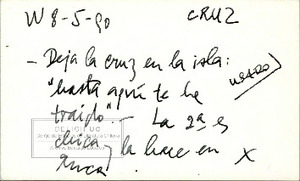 W 8-5-90 CRUZ
- Deja la cruz en la isla:
"hasta aquí te he
traído". - La 2ª es
chica y la hace en X